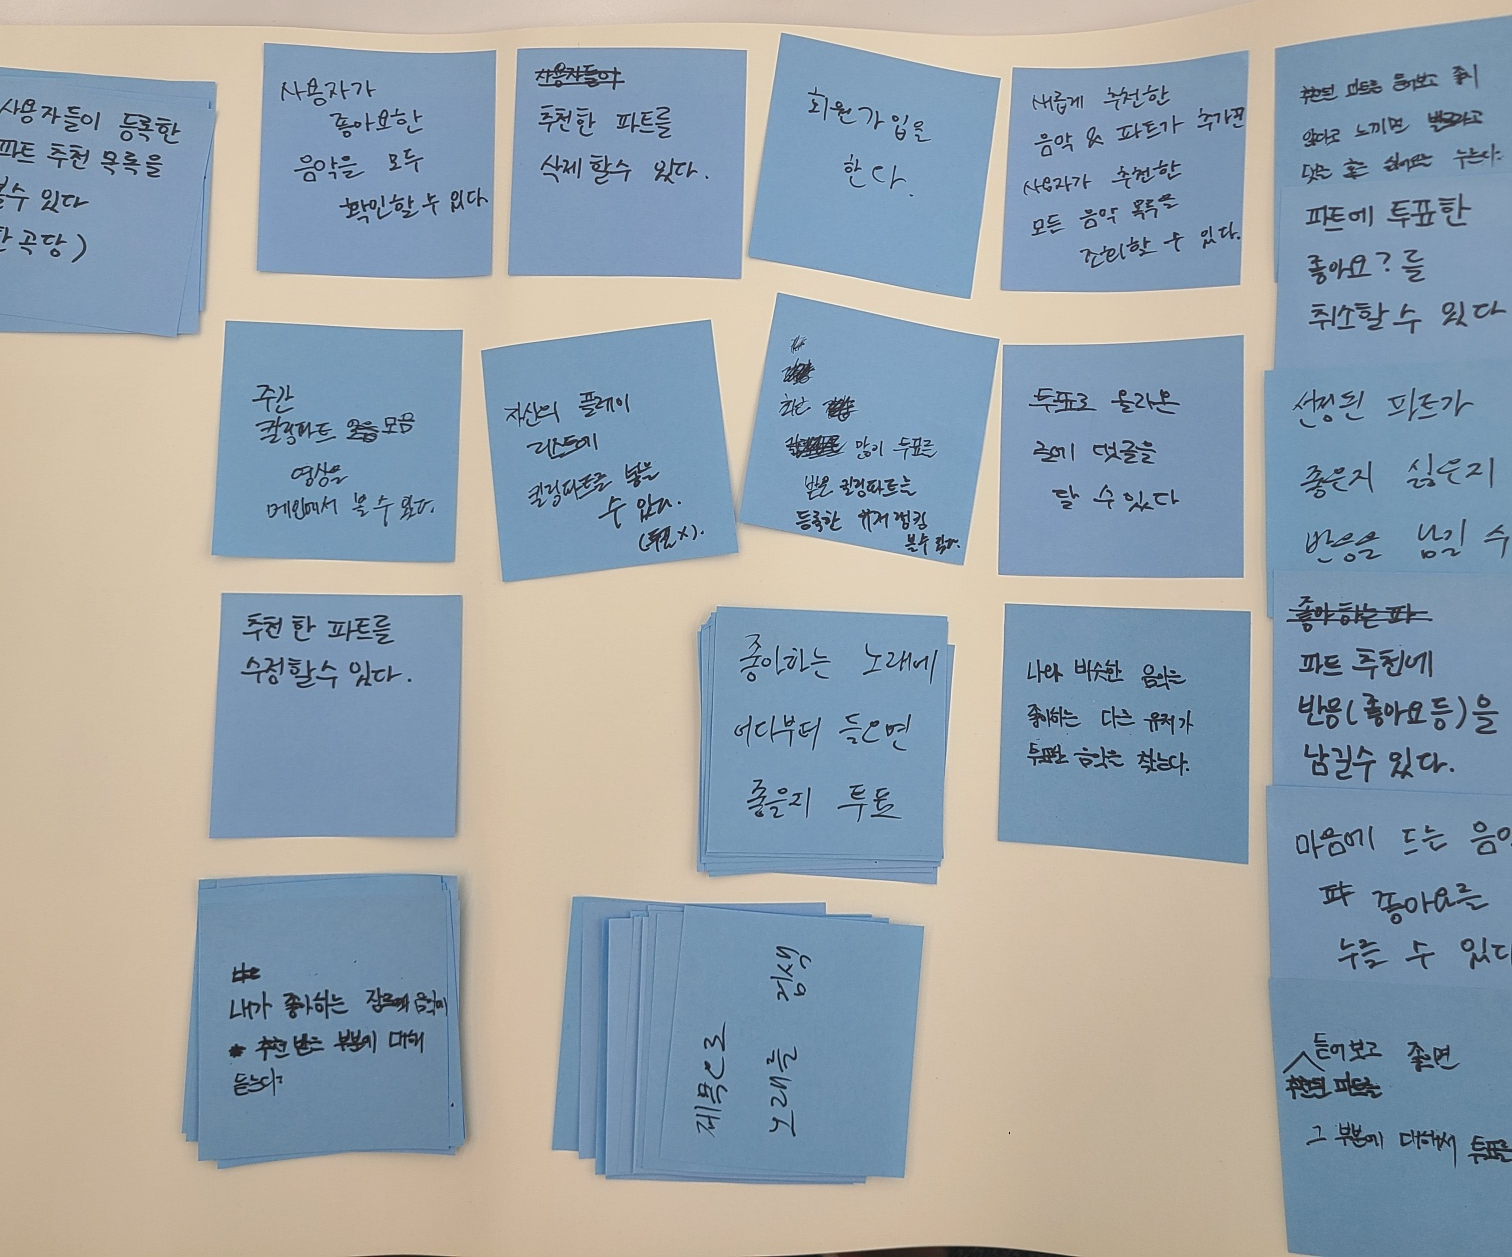 사용자들이 등록한
파트 추천 목록을
볼수 있다
한 곡당)
사용자가
좋아요한
음악을 모두
확인할 수 있다
사용자들이
추천한 파트를
삭제 할수 있다.
회원가입을
한다.
새롭게 추천한
음악 및 파트가 추가된
사용자가 추천한
모든 음악 목록을
조회할 수 있다.
추천된 파트를 들어보고 좋지
않다고 느끼면 별로라고
댓글 혹은 싫어요를 누른다.
파트에 투표한
좋아요? 를
취소할 수 있다
주간
킬링파트 모음
영상을
메인에서 볼 수 있다.
자신의 플레이
리스트에
킬링파트를 넣을
수 있다.
(투표 X).
최근
많이 투표를
받은 킬링파트를
등록한 유저 랭킹
볼수 있다.
투표로 올라온
글에 댓글을
달 수 있다
선정된 파트가
좋은지 싫은지
반응을 남길 수
추천 한 파트를
수정할 수 있다.
좋아하는 노래에
어디부터 들으면
좋을지 투표
나와 비슷한 음악을
좋아하는 다른 유저가
투표한 음악을 찾는다.
좋아하는 파
파트 추천에
반응(좋아요 등)을
남길수 있다.
마음에 드는 음
좋아요를
누를 수 있다
내가 좋아하는 장르의 음악이
추천 받은 부분에 대해
듣는다.
제목으로
노래를 검색
들어보고 좋으면
추천된 파트를
그 부분에 대해서 투표를